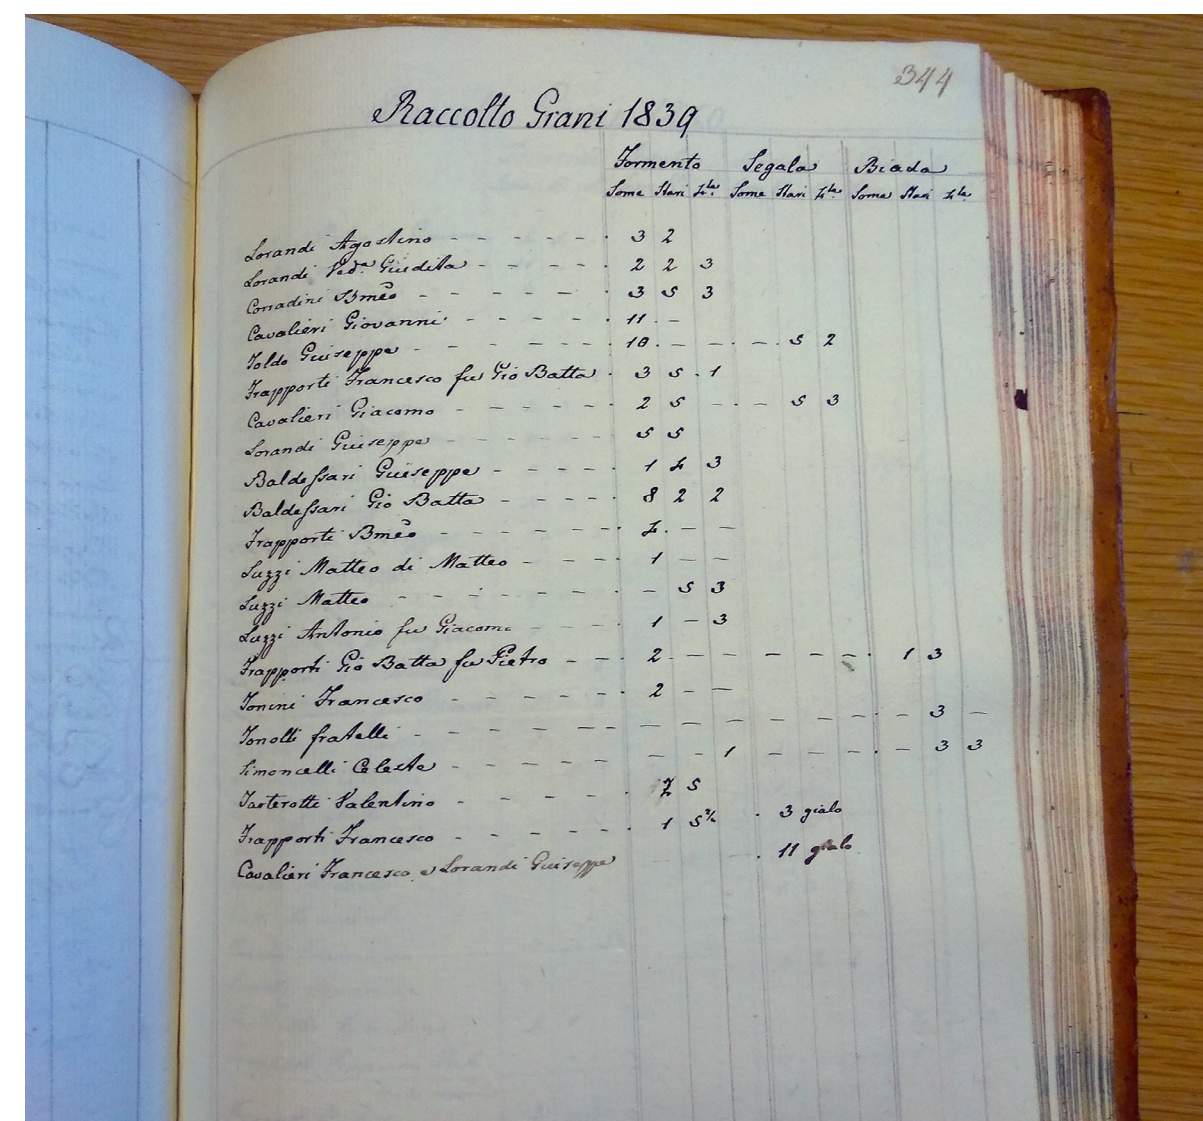 344
Raccolto Grani 1839
Formento Segala Biada
Some Stari 4.te Some Stari 4.te Some Stari 4.te
Lorandi Agostino - - - - - · 3 2
Lorandi Ved.a Giuditta - - - - · 2 2 3
Corradini Bmeo - - - - - · 3 5 3
Cavalieri Giovanni - - - - - 11 · -
Toldo Giuseppe - - - - - - 10 · - - · - · 5 2
Trapporti Francesco fu Gio Batta · 3 5 · 1
Cavalieri Giacomo - - - - - · 2 5 - · - 5 3
Lorandi Giuseppe - - - - - · 5 5
Baldessari Giuseppe - - - - · 1 4 3
Baldessari Gio Batta - - - - · 8 2 2
Trapporti Bmeo - - - - - · 4 · - -
Luzzi Matteo di Matteo - - - - 1 - -
Luzzi Matteo - - - - - - - 5 3
Luzzi Antonio fu Giacomo - - - 1 - 3
Trapporti Gio Batta fu Pietro - - · 2 · - - - - - - · 1 3
Tonini Francesco - - - - - 2 - -
Tonolli fratelli - - - - - - - - - - - - · - 3 -
Simoncelli Celeste - - - - - - - 1 - - - · - 3 3
Tarterotti Valentino - - - - - · 7 5
Trapporti Francesco - - - - - · 1 5 2/2 · 3 gialo
Cavalieri Francesco e Lorandi Giuseppe - - · 11 gialo